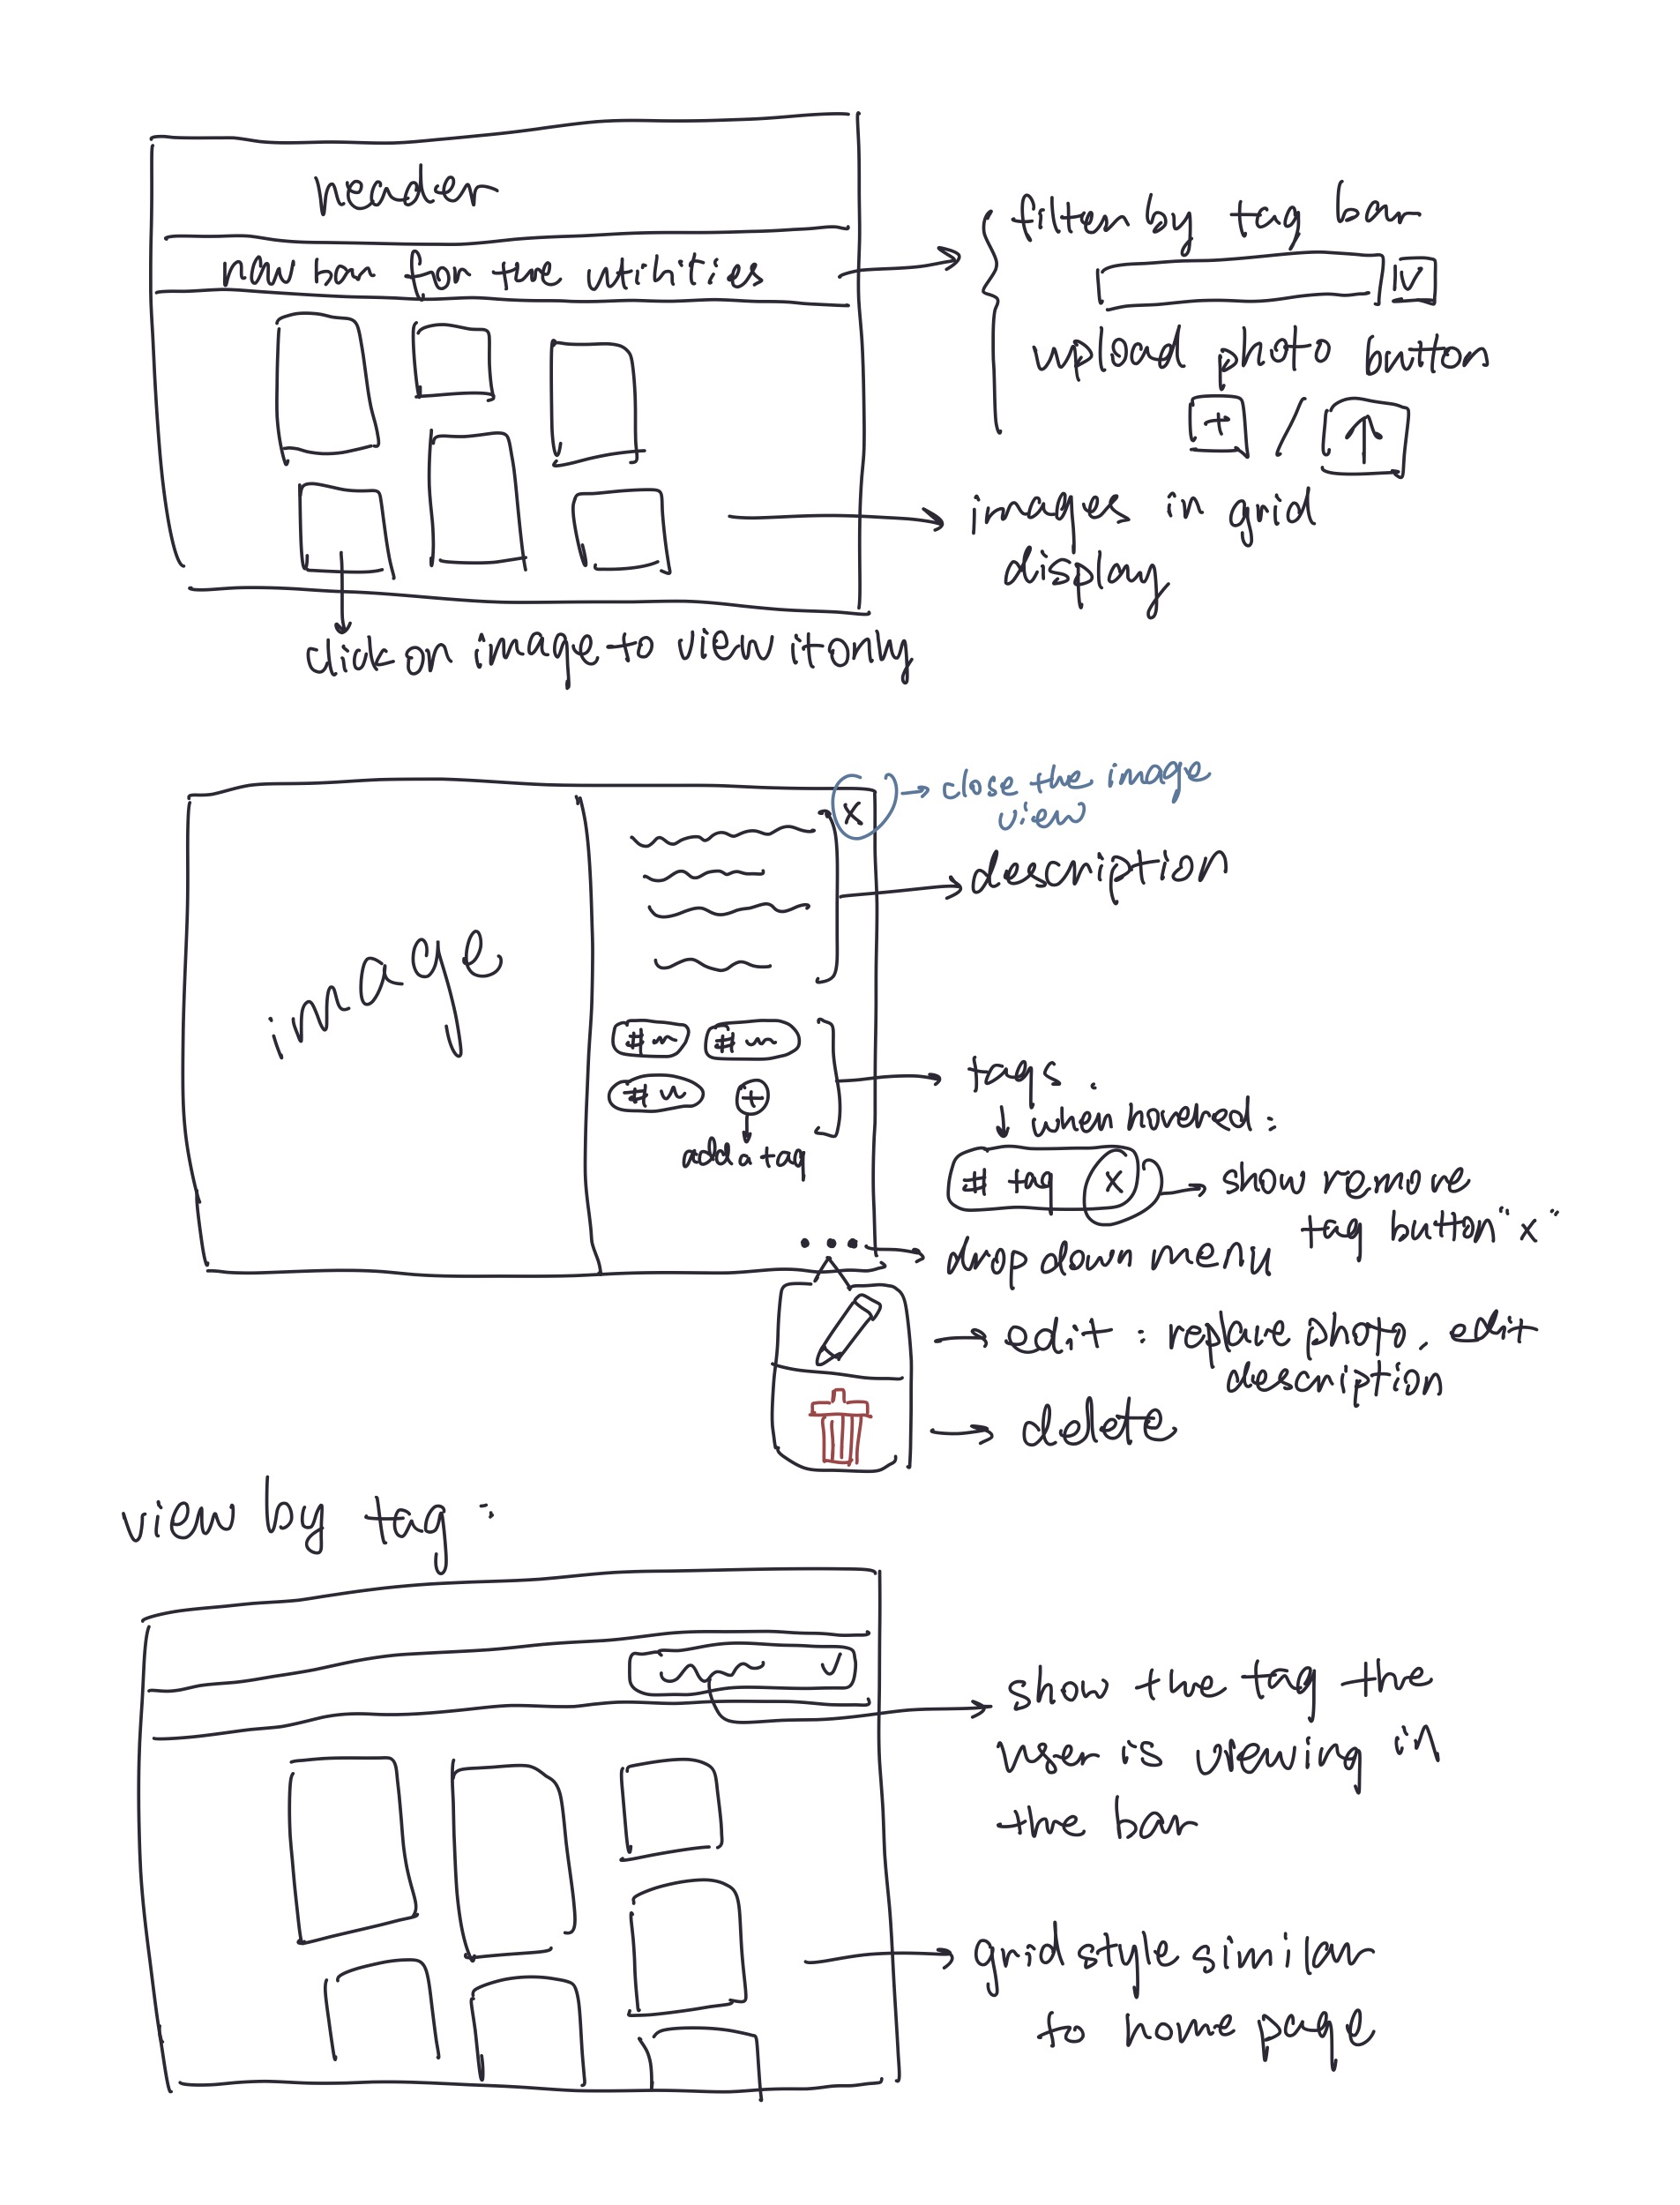 header
nav bar for the utilities
filter by tag bar
upload photo button
+ /
images in grid
display
click on image to view it only
x
close the image
view
description
image
# #
# +
add a tag
tags
when hovered :
# tag x
show remove
tag button "x"
drop down menu
edit : replace photo, edit
description
delete
view by tag :
show the tag the
user is viewing in
the bar
grid style similar
to home page